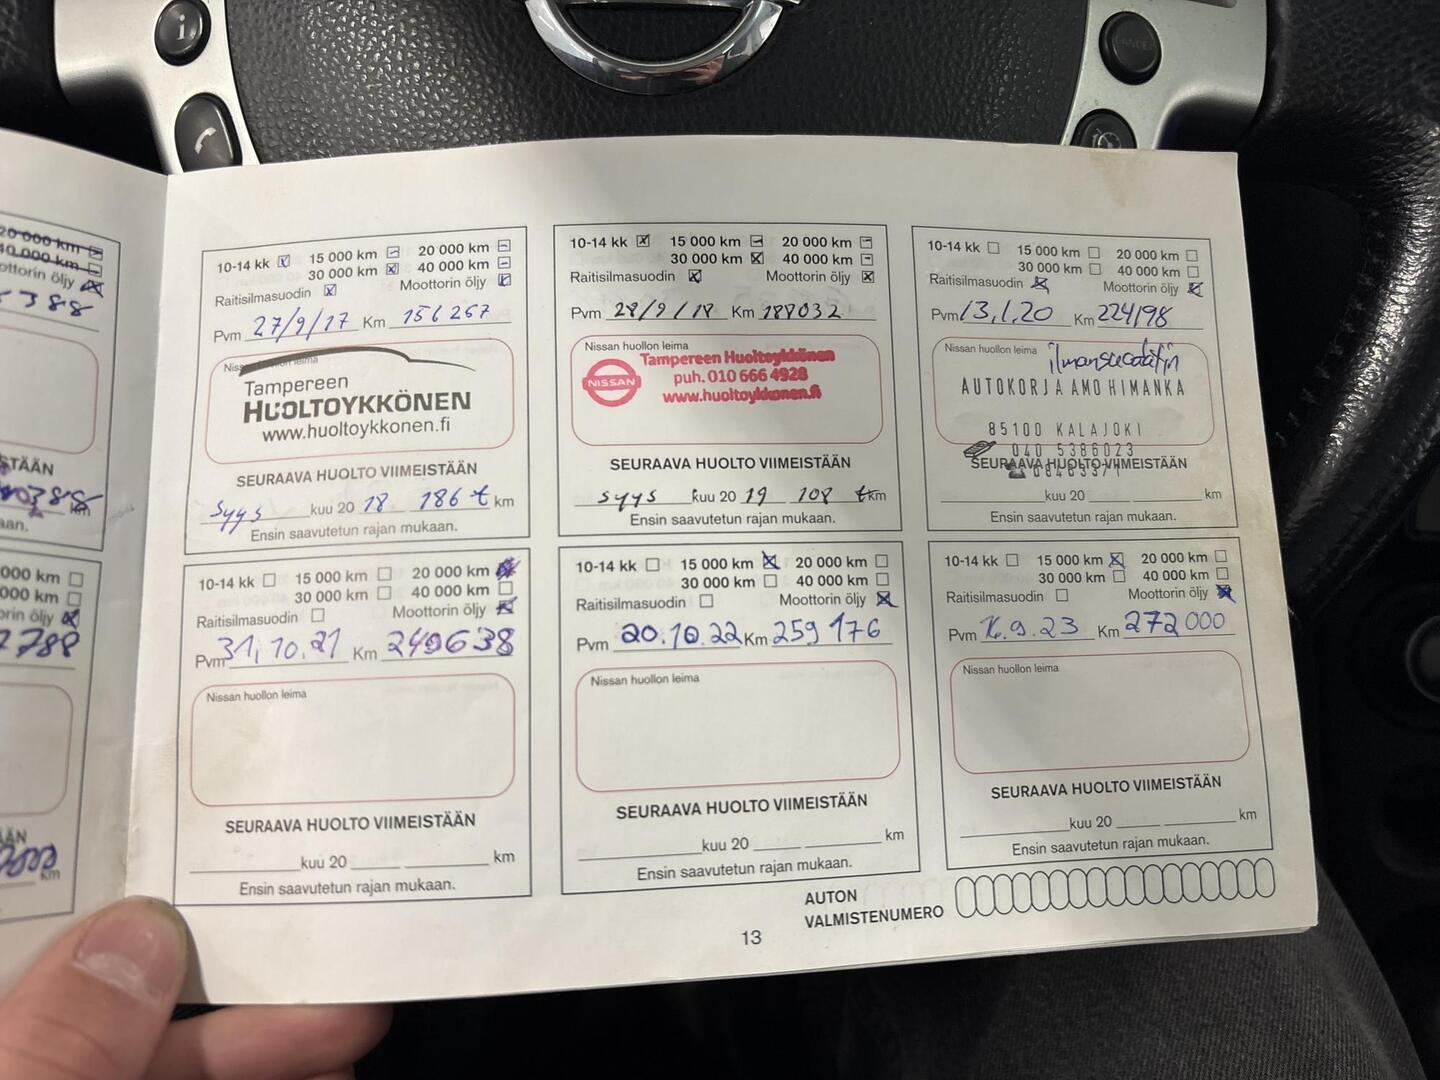 i
10-14 kk 15 000 km 20 000 km
30 000 km 40 000 km
Raitisilmasuodin Moottorin öljy
Pvm 27/9/17 Km 156267
Nissan huollon leima
Tampereen
HUOLTOYKKÖNEN
www.huoltoykkonen.fi
SEURAAVA HUOLTO VIIMEISTÄÄN
syys kuu 20 18 186 t km
Ensin saavutetun rajan mukaan.
10-14 kk 15 000 km 20 000 km
30 000 km 40 000 km
Raitisilmasuodin Moottorin öljy
Pvm 28/9/18 Km 188032
Nissan huollon leima
NISSAN
Tampereen Huoltoykkönen
puh. 010 666 4928
www.huoltoykkonen.fi
SEURAAVA HUOLTO VIIMEISTÄÄN
syys kuu 20 19 108 t km
Ensin saavutetun rajan mukaan.
10-14 kk 15 000 km 20 000 km
30 000 km 40 000 km
Raitisilmasuodin Moottorin öljy
Pvm 13.1.20 Km 224198
Nissan huollon leima
ilmansuodatin
AUTOKORJAAMO HIMANKA
85100 KALAJOKI
040 5386023
SEURAAVA HUOLTO VIIMEISTÄÄN
kuu 20 km
Ensin saavutetun rajan mukaan.
10-14 kk 15 000 km 20 000 km
30 000 km 40 000 km
Raitisilmasuodin Moottorin öljy
Pvm 31.10.21 Km 249638
Nissan huollon leima
SEURAAVA HUOLTO VIIMEISTÄÄN
kuu 20 km
Ensin saavutetun rajan mukaan.
10-14 kk 15 000 km 20 000 km
30 000 km 40 000 km
Raitisilmasuodin Moottorin öljy
Pvm 20.10.22 Km 259176
Nissan huollon leima
SEURAAVA HUOLTO VIIMEISTÄÄN
kuu 20 km
Ensin saavutetun rajan mukaan.
10-14 kk 15 000 km 20 000 km
30 000 km 40 000 km
Raitisilmasuodin Moottorin öljy
Pvm 16.9.23 Km 272000
Nissan huollon leima
SEURAAVA HUOLTO VIIMEISTÄÄN
kuu 20 km
Ensin saavutetun rajan mukaan.
AUTON
VALMISTENUMERO
13